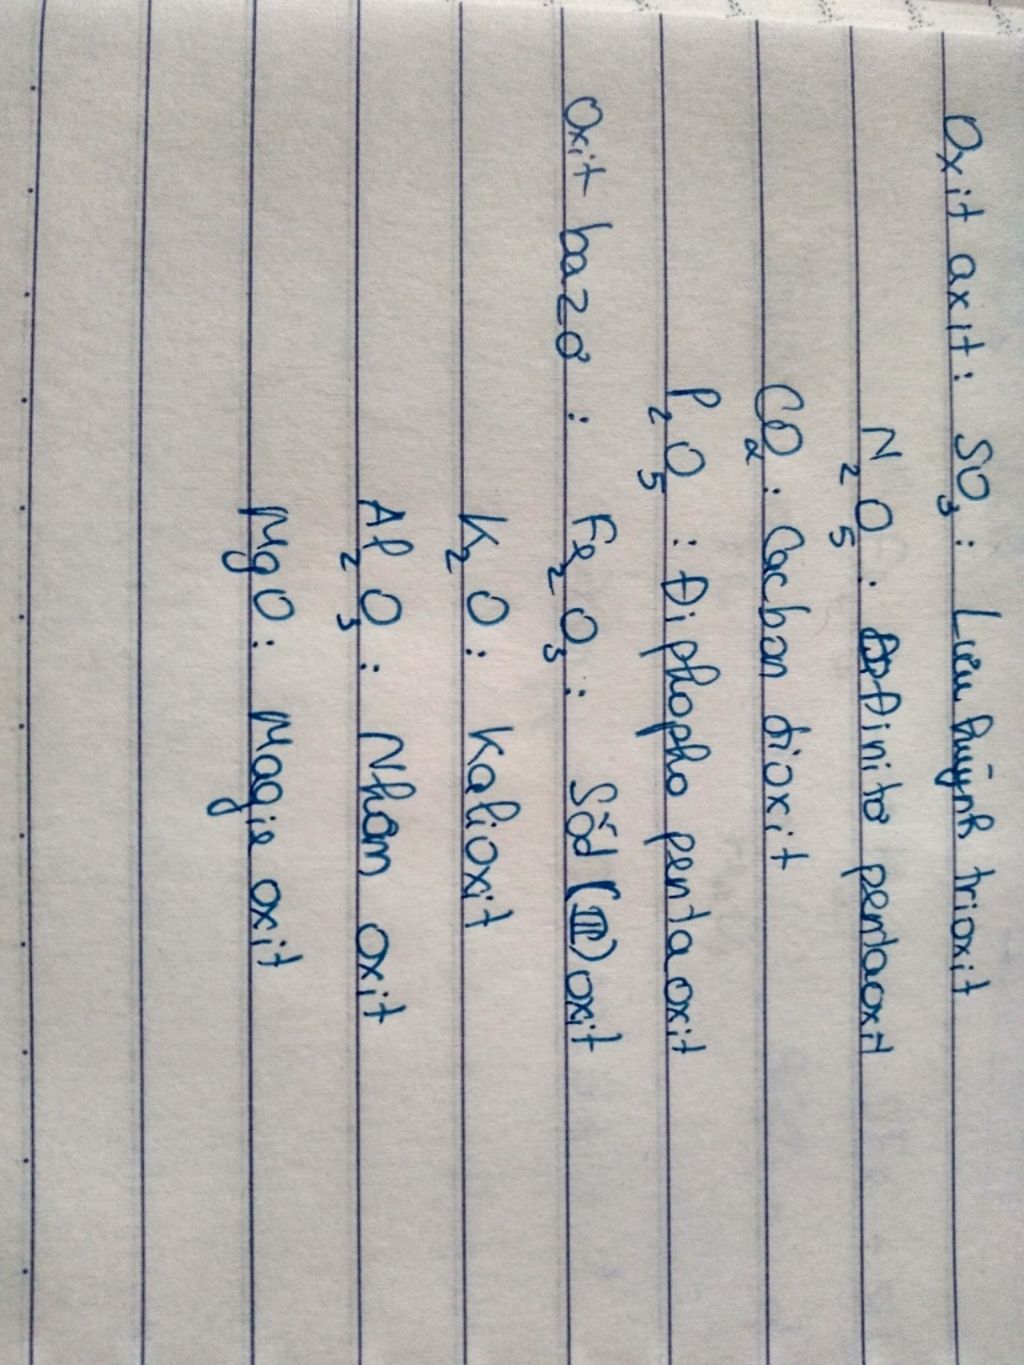 Oxit axit: SO₃: Lưu huỳnh trioxit
N₂O₅: Đinitơ pentaoxit
CO₂: Cacbon đioxit
P₂O₅: Điphopho pentaoxit
Oxit bazơ: Fe₂O₃: Sắt (III) oxit
K₂O: Kalioxit
Al₂O₃: Nhôm oxit
MgO: Magie oxit